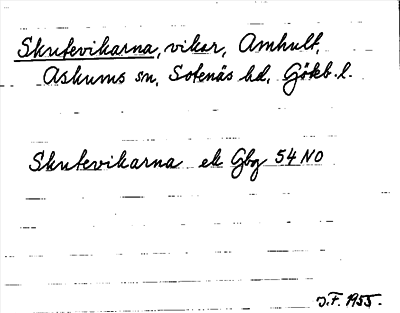 Skutevikarna, vikar, Amhult,
Askums sn, Sotenäs hd, Götb. l.
Skutevikarna ek Gbg 54 NO
J.F. 1955.